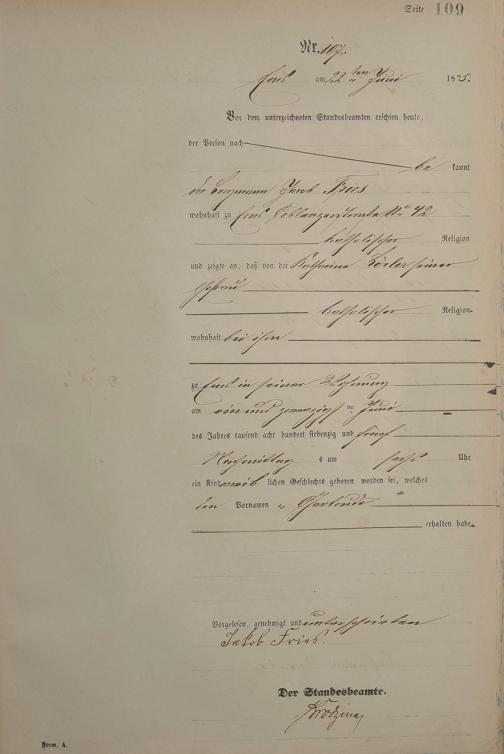 Seite 109
Nr. 107.
Ems am 22 ten Juni 1875.
Vor dem unterzeichneten Standesbeamten erschien heute,
der Person nach be kannt
Jacob Fries
wohnhaft zu Ems Coblenzerstraße No 42
katholischer Religion
und zeigte an, daß von der Katharina seiner
Ehefrau
katholischer Religion.
wohnhaft bei ihm
zu Ems in seiner Wohnung
am ein und zwanzigst en Juni
des Jahres tausend acht hundert siebenzig und fünf
Nachmittag s um sechs Uhr
ein Kind weib lichen Geschlechts geboren worden sei, welches
den Vornamen „ Gertrude “
erhalten habe.
Vorgelesen, genehmigt und unterschrieben
Jakob Fries.
Der Standesbeamte.
Form. A.